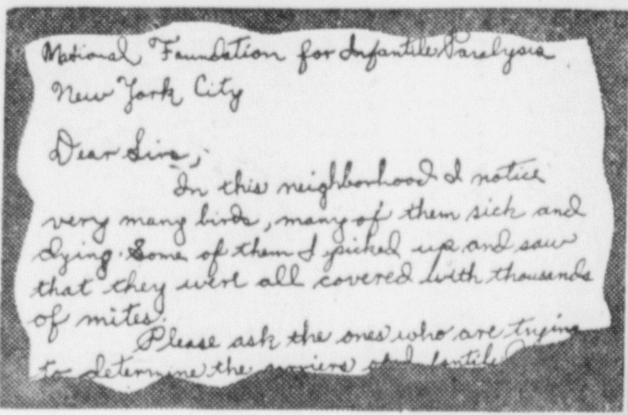 National Foundation for Infantile Paralysis
New York City
Dear Sirs,
In this neighborhood I notice
very many birds, many of them sick and
dying. Some of them I picked up and saw
that they were all covered with thousands
of mites.
Please ask the ones who are trying
to determine the carriers of Infantile